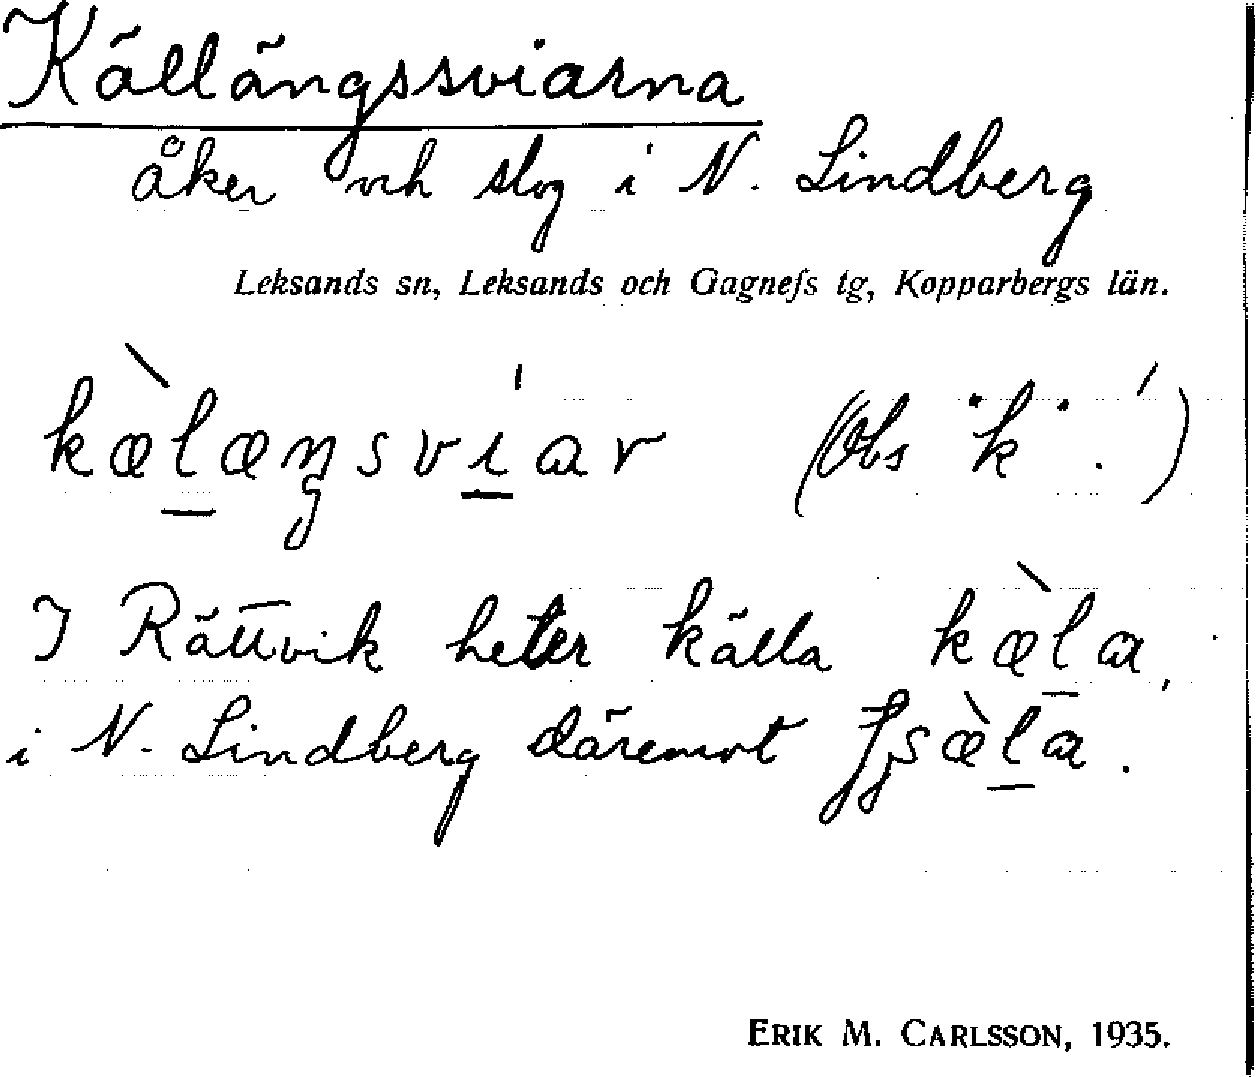 Källängssviarna
åker och slog i N. Lindberg
Leksands sn, Leksands och Gagnefs tg, Kopparbergs län.
kæ̀læŋsvíar (Obs "k".!)
I Rättvik heter källa kæ̀la,
i N. Lindberg däremot sæ̀la.
ERIK M. CARLSSON, 1935.